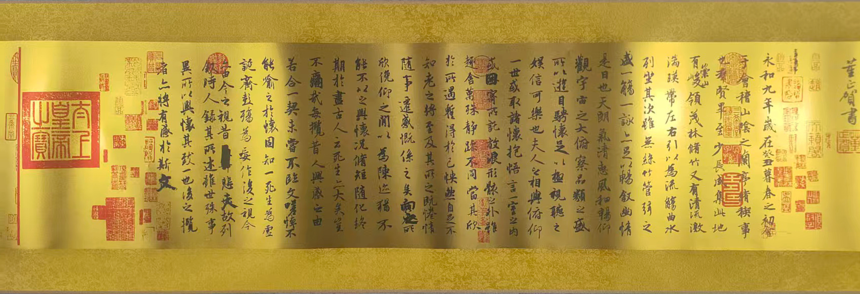 董正賀書
永和九年歲在癸丑暮春之初會
于會稽山陰之蘭亭脩稧事
也群賢畢至少長咸集此地
有崇山峻領茂林脩竹又有清流激
湍暎帶左右引以為流觴曲水
列坐其次雖無絲竹管弦之
盛一觴一詠亦足以暢敘幽情
是日也天朗氣清惠風和暢仰
觀宇宙之大俯察品類之盛
所以遊目騁懷足以極視聽之
娛信可樂也夫人之相與俯仰
一世或取諸懷抱悟言一室之內
或因寄所託放浪形骸之外雖
趣舍萬殊靜躁不同當其欣
於所遇暫得於己怏然自足不
知老之將至及其所之既惓情
隨事遷感慨係之矣向之所
欣俛仰之閒以為陳迹猶不
能不以之興懷況脩短隨化終
期於盡古人云死生亦大矣豈
不痛哉每攬昔人興感之由
若合一契未嘗不臨文嗟悼不
能喻之於懷固知一死生為虛
誕齊彭殤為妄作後之視今
亦由今之視昔悲夫故列
敘時人錄其所述雖世殊事
異所以興懷其致一也後之攬
者亦將有感於斯文
太上皇帝之寶